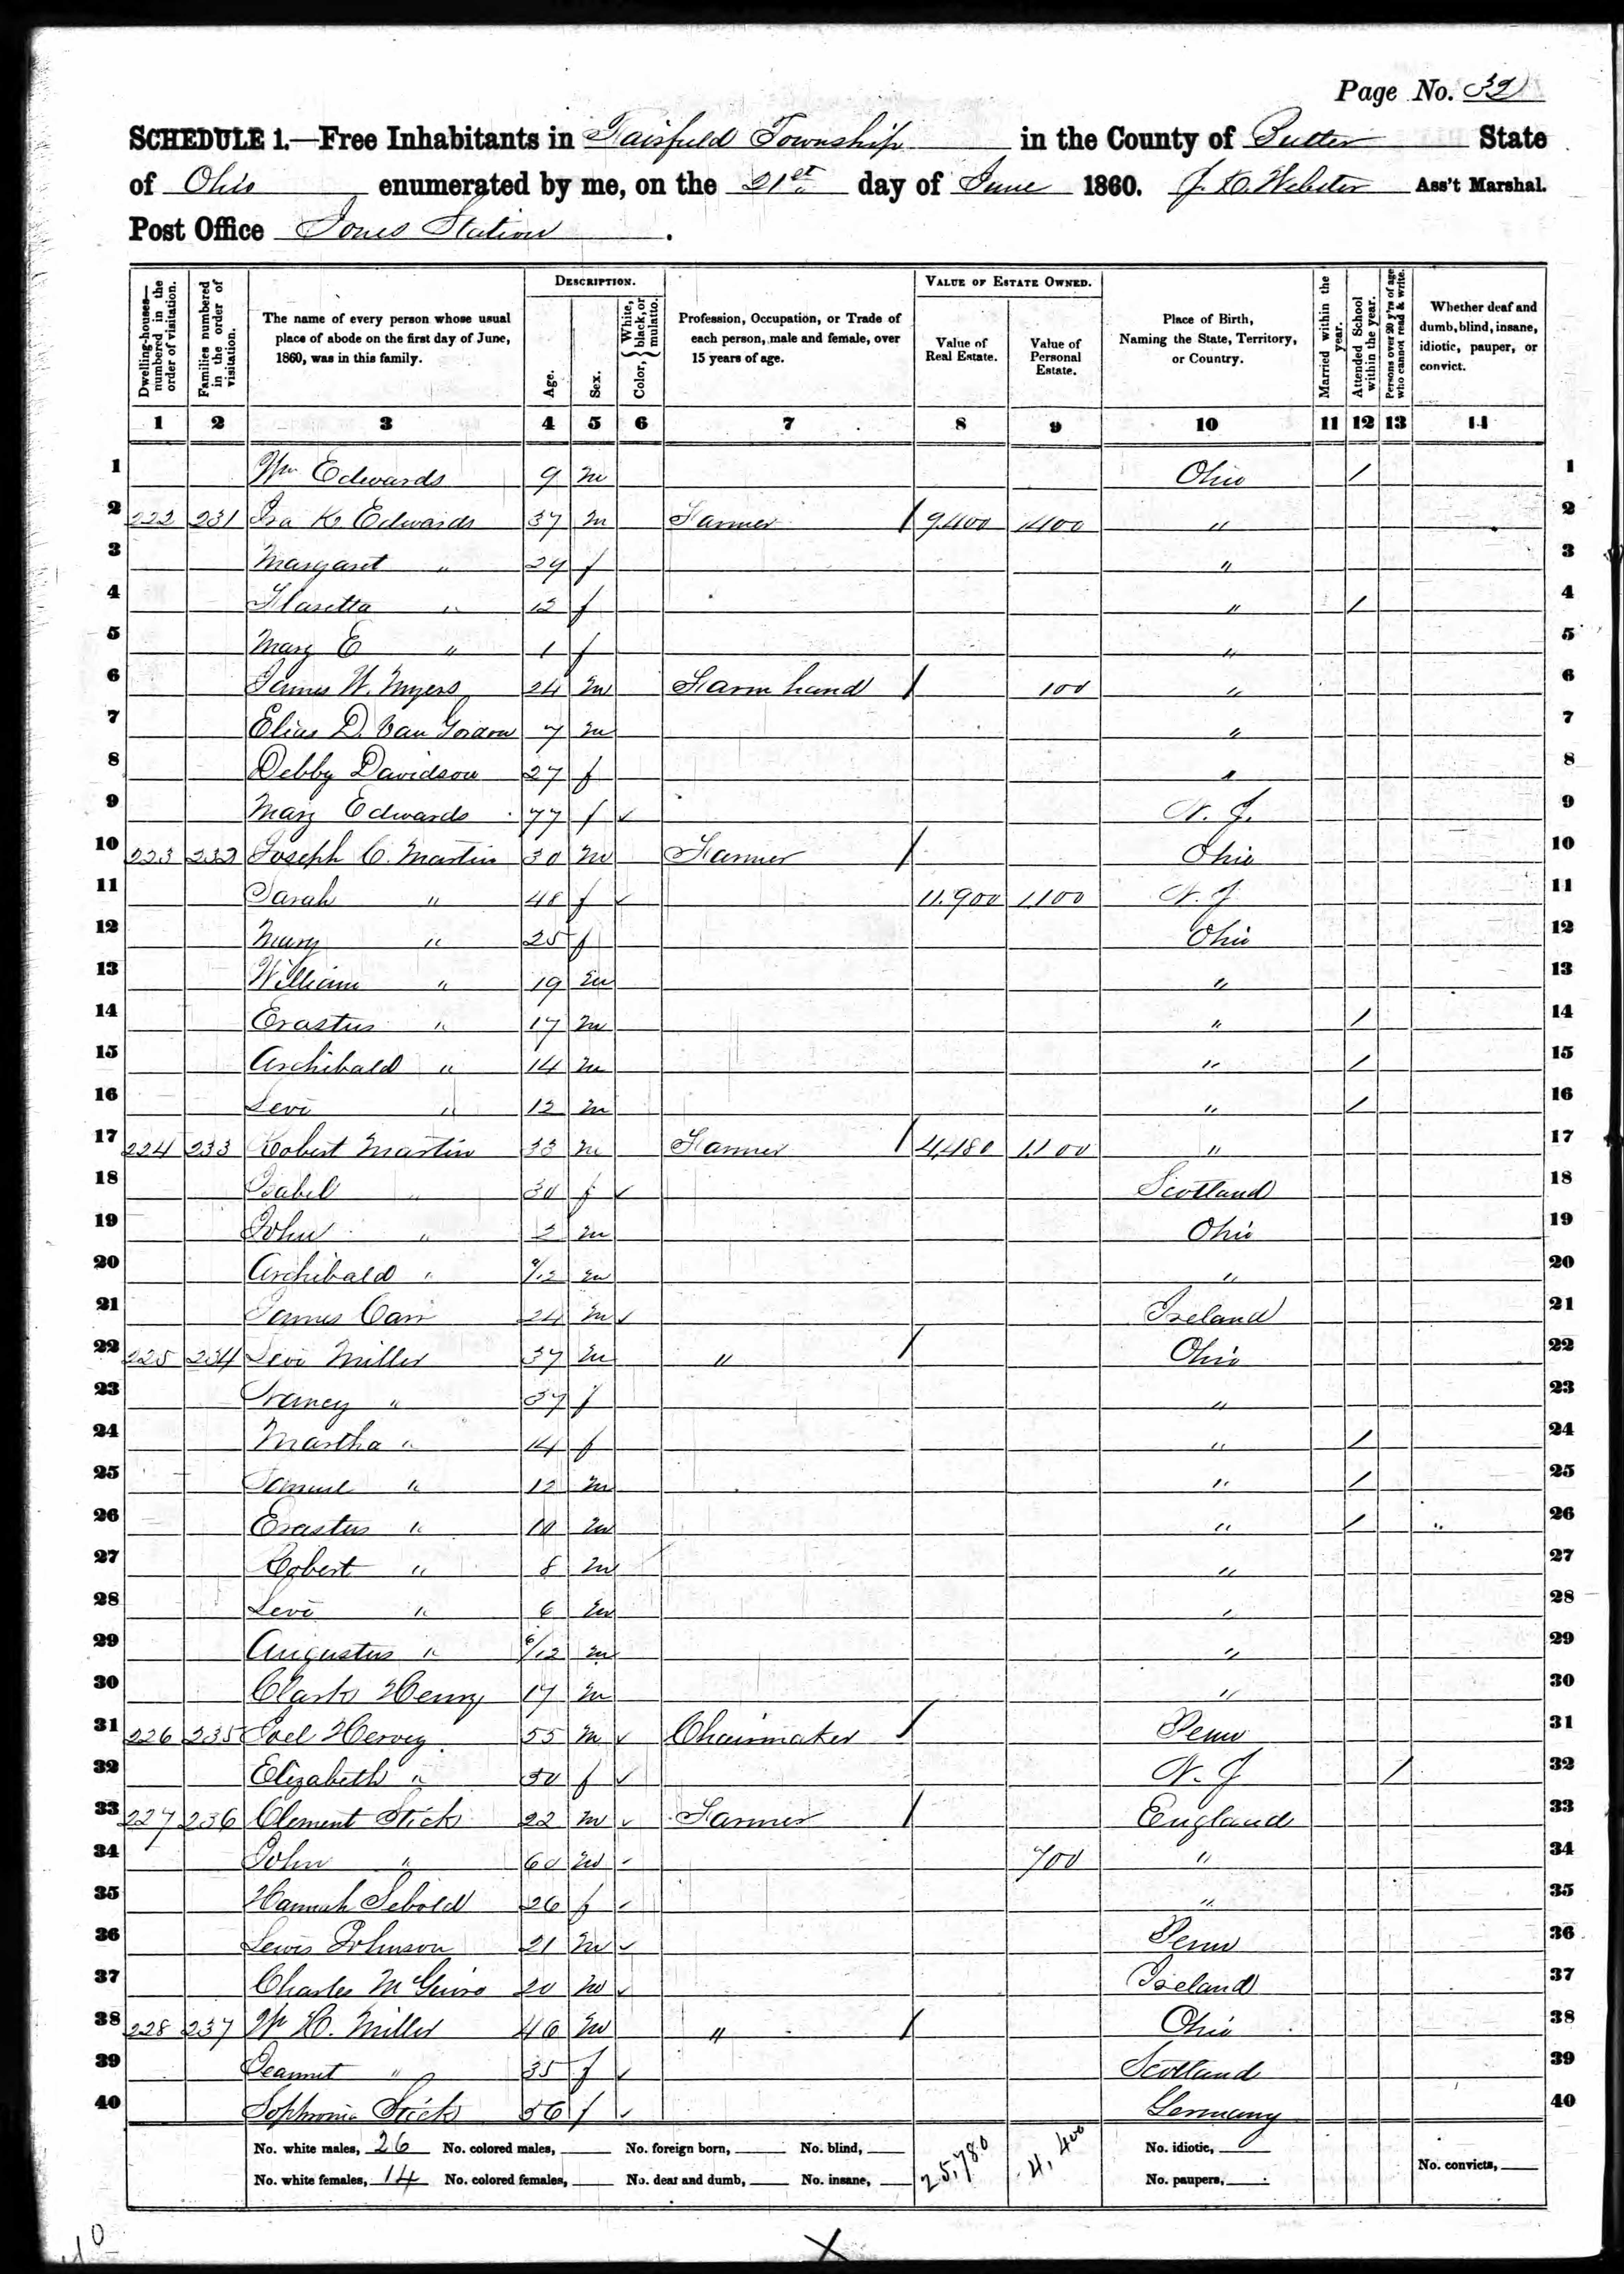 Page No. 32
SCHEDULE 1.—Free Inhabitants in Fairfield Township in the County of Butler State
of Ohio enumerated by me, on the 21st day of June 1860. J. Webster Ass't Marshal.
Post Office Jones Station.
DESCRIPTION. VALUE OF ESTATE OWNED.
Dwelling-houses—numbered in the order of visitation. Families numbered in the order of visitation. The name of every person whose usual place of abode on the first day of June, 1860, was in this family. Age. Sex. Color, { White, black, or mulatto. Profession, Occupation, or Trade of each person, male and female, over 15 years of age. Value of Real Estate. Value of Personal Estate. Place of Birth, Naming the State, Territory, or Country. Married within the year. Attended School within the year. Persons over 20 y'rs of age who cannot read & write. Whether deaf and dumb, blind, insane, idiotic, pauper, or convict.
1 2 3 4 5 6 7 8 9 10 11 12 13 14
1 Wm Edwards 9 m Ohio / 1
2 222 231 Ira K. Edwards 37 m Farmer / 9,400 1400 " 2
3 Margaret " 29 f " 3
4 " 12 f " / 4
5 Mary E " 1 f " 5
6 James W. Myers 24 m Farm hand / 100 " 6
7 Elias D. Van Gordon 7 m " 7
8 Debby Davidson 27 f " 8
9 Mary Edwards 77 f ✓ N. J. 9
10 223 232 Joseph C. Martin 30 m Farmer / Ohio 10
11 Sarah " 48 f ✓ 11,900 1,100 N. J. 11
12 Mary " 25 f Ohio 12
13 William " 19 m " 13
14 Erastus " 17 m " / 14
15 Archibald " 14 m " / 15
16 Levi " 12 m " / 16
17 224 233 Robert Martin 33 m Farmer / 4,480 1,100 " 17
18 Isabel " 30 f ✓ Scotland 18
19 John " 2 m Ohio 19
20 Archibald " /12 m " 20
21 James Carr 24 m ✓ Ireland 21
22 225 234 Levi Miller 37 m " / Ohio 22
23 Nancy " 37 f " 23
24 Martha " 14 f " / 24
25 Samuel " 12 m " / 25
26 Erastus " 10 m " / 26
27 Robert " 8 m " 27
28 Levi " 6 m " 28
29 Augustus " 6/12 m " 29
30 Clark Henry 17 m " 30
31 226 235 Joel Hervey 55 m ✓ Chairmaker / Penn 31
32 Elizabeth " 50 f ✓ N. J / 32
33 227 236 Clement Stick 22 m ✓ Farmer / England 33
34 John " 60 m ✓ 700 " 34
35 Hannah Sebold 26 f ✓ " 35
36 Lewis Johnson 21 m ✓ Penn 36
37 Charles McGuire 20 m ✓ Ireland 37
38 228 237 Wm H. Miller 46 m " / Ohio 38
39 Jeannet " 35 f ✓ Scotland 39
40 Sophronia Stick 56 f ✓ Germany 40
No. white males, 26 No. colored males, No. foreign born, No. blind, 25,780 4,400 No. idiotic,
No. white females, 14 No. colored females, No. deaf and dumb, No. insane, No. paupers, No. convicts,